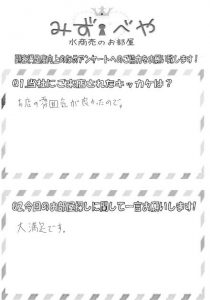 みずべや
水商売のお部屋
顧客満足度向上の為アンケートへのご協力をお願い致します!
Q1.当社にご来店されたキッカケは?
お店の雰囲気が良かったので。
Q2.今日のお部屋探しに関して一言お願いします!
大満足です。